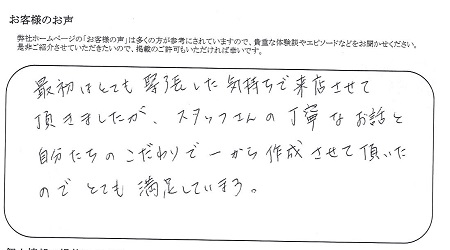 お客様のお声
弊社ホームページの「お客様の声」は多くの方が参考にされていますので、貴重な体験談やエピソードなどをお聞かせください。
是非ご紹介させていただきたいので、掲載のご許可もいただければ幸いです。
最初はとても緊張した気持ちで来店させて
頂きましたが、スタッフさんの丁寧なお話と
自分たちのこだわりで一から作成させて頂いた
のでとても満足しています。